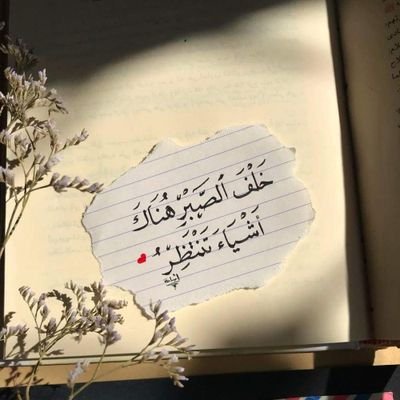 خَلْفَ الصَّبْرِ هُنَاكَ
أَشْيَاءَ تَنْتَظِرُ